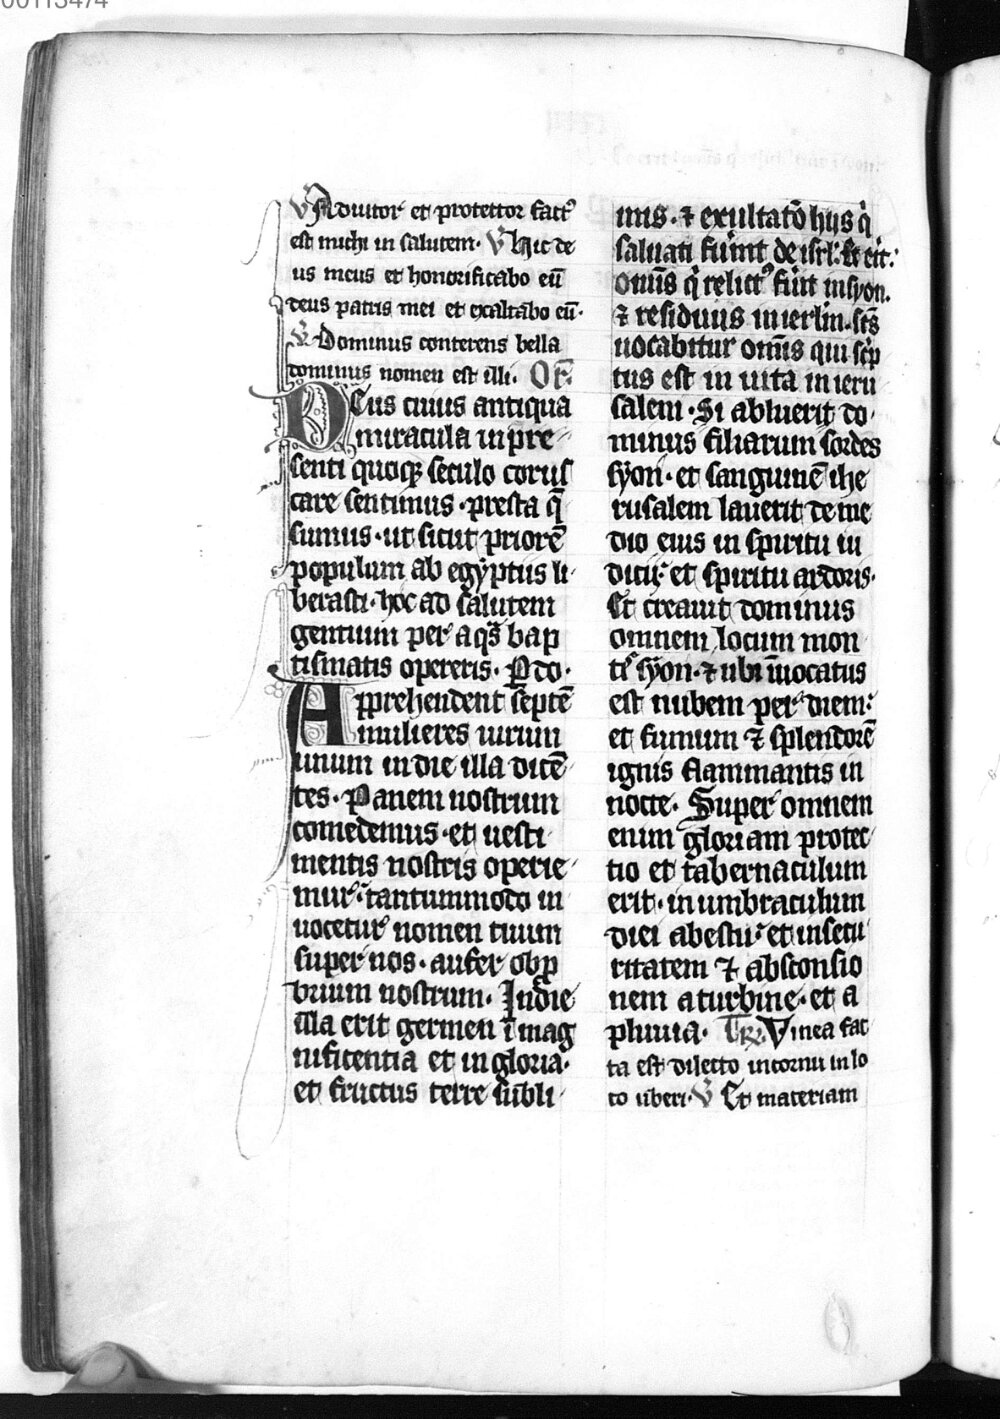 00113474
V Adiutor et protector fact᷒
est michi in salutem· V hic de
us meus et honorificabo eū
deus patris mei et exaltabo eū·
V Dominus conterens bella
dominus nomen est illi. Or̄.
Deus cuius antiqua
miracula in pre
senti quoq; seculo corus
care sentimus · presta q̄
sumus · ut sicut priorē
populum ab egyptiis li
berasti · hoc ad salutem
gentium per aq̄s bap
tismatis opereris. P do·
Apprehendent septē
mulieres uirum
unum in die illa dicē
tes. Panem nostrum
comedemus · et uesti
mentis nostris operie
mur · tantummodo in
uocetur nomen tuum
super nos · aufer obp
brium nostrum. In die
illa erit germen ī mag
nificentia et in gloria·
et fructus terre subli
mis · ⁊ exultatō hiis q̇
saluati fuīnt de isrl: Et eīt:
omīs q̇ relict᷒ fūit in syon.
⁊ residuus in ierlm. scs̄
uocabitur omīs qui scͥp
tus est in uita in ieru
salem · Si abluerit do
minus filiarum sordes
syon · et sanguinē ihe
rusalem lauerit de me
dio eius in spiritu iu
dicii: et spiritu ardoris·
Et creauit dominus
omnem locum mon
tis syon · ⁊ ubi īuocatus
est nubem per diem:
et fumum ⁊ splendorē
ignis flammantis in
nocte. Super omnem
enim gloriam protec
tio et tabernaculum
erit · in umbraculum
diei ab estu: et in secu
ritatem ⁊ absconsio
nem a turbine · et a
pluuia. Tr̄. Vinea fac
ta est dilecto in cornu in lo
co uberi· V Et materiam